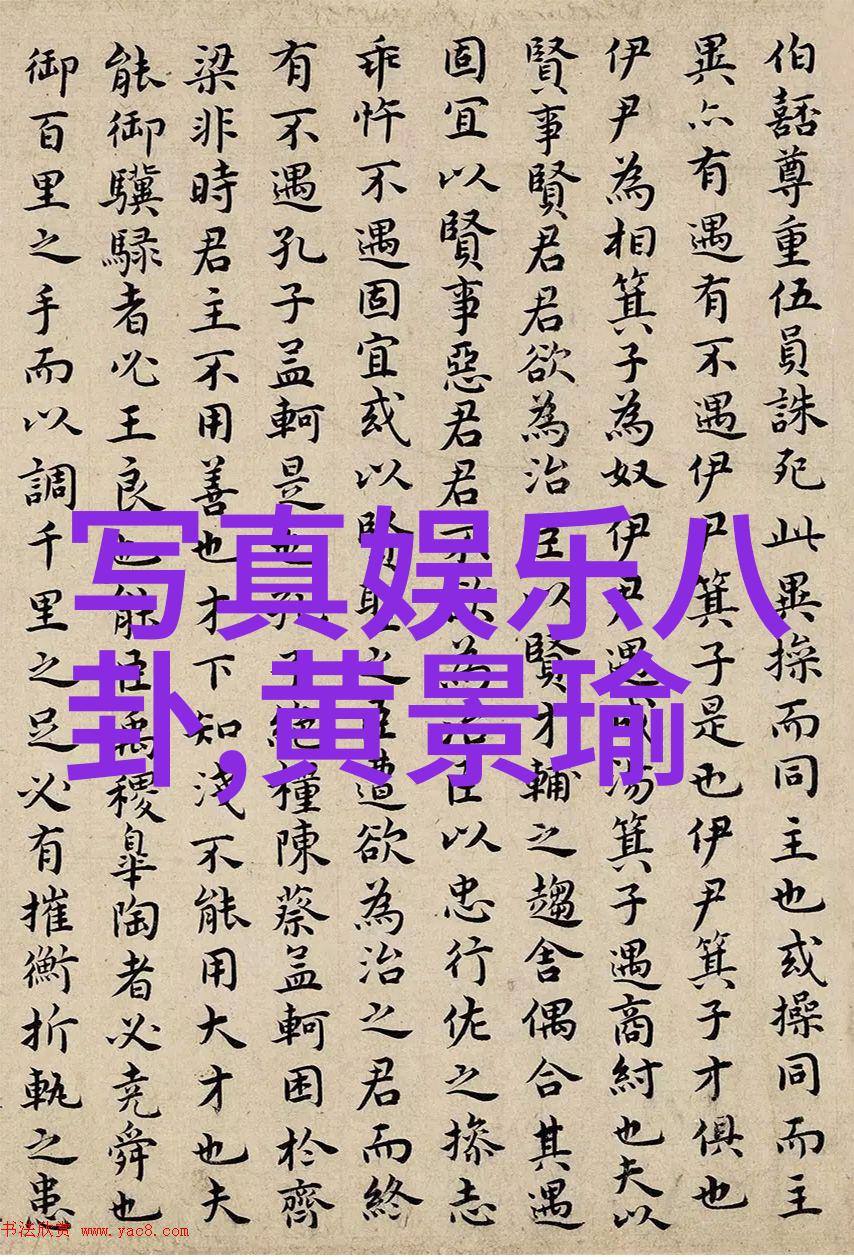 伯嚭尊重伍員誅死此異操而同主也或操同而主
異亦有遇有不遇伊尹箕子是也伊尹箕子才俱也
伊尹為相箕子為奴伊尹遇成湯箕子遇商紂也夫以
賢事賢君君欲為治臣以賢才輔之趨舍偶合其遇
固宜以賢事惡君君不欲為治臣以忠行佐之操志
乖忤不遇固宜或以賢聖之臣遭欲為治之君而終
有不遇孔子孟軻是也孔子絕糧陳蔡孟軻困於齊
梁非時君主不用善也才下知淺不能用大才也夫
能御驥騄者必王良也能臣禹稷皋陶者必堯舜也
御百里之手而以調千里之足必有摧衡折軛之患
写真娱乐八
卦,黄景瑜
书法欣赏 www.yac8.com